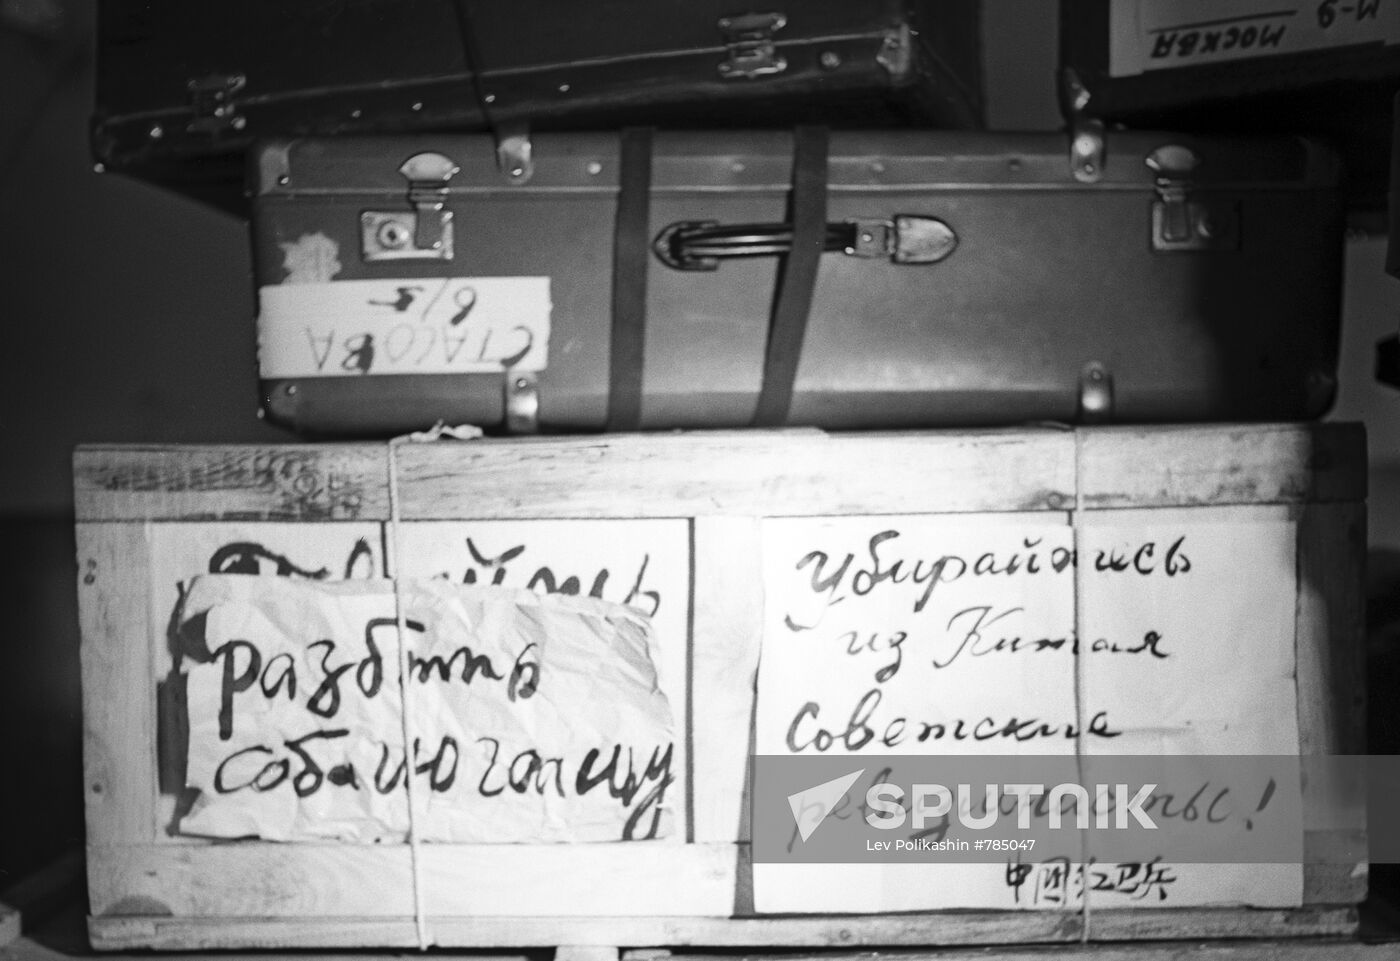 М-9
МОСКВА
СТАСОВА
б/я
разбить
собачью
Убирайтесь
из Китая
Советские
ревизионисты!
中国红卫兵
SPUTNIK
Lev Polikashin #785047